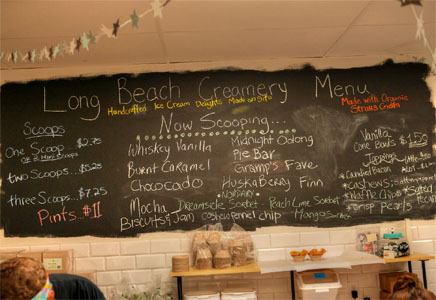 Long Beach Creamery Menu
Handcrafted Ice Cream Delights Made on Site
Made with Organic
Straus Cream
Now Scooping...
Scoops
One Scoop $2.75
two scoops...$5.25
three Scoops $7.25
Pints $11
Whiskey Vanilla
Burnt Caramel
Chococado
Mocha
Biscuits & Jam
Midnight Oolong
Pie Bar
Gramp's Fave
HuskaBerry Finn
Dreamsicle Sorbet - Peach Lime Sorbet
cashew fennel chip
Mango Sorbet
Vanilla
Cone Bowls $1.50
Toppings
Candied Bacon
Cashews
Waffle Cone
Crisp Pearls